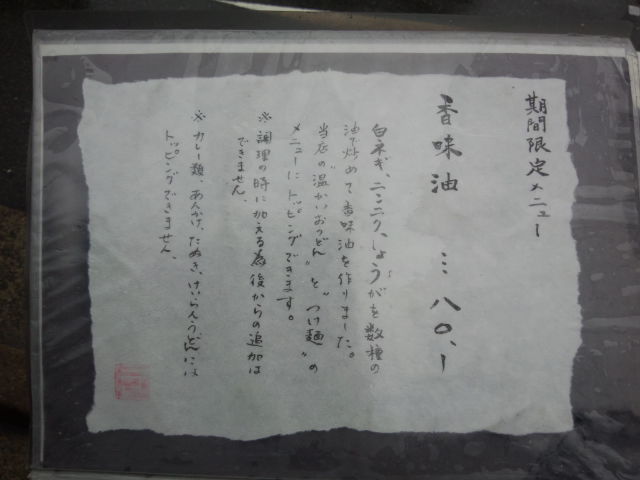 期間限定メニュー
香味油 … 八〇、ー
白ネギ、ニンニク、しょうがを数種の
油で炒めて香味油を作りました。
当店の"温かいおうどん"と"つけ麺"の
メニューにトッピングできます。
※調理の時に加える為後からの追加は
できません。
※カレー類、あんかけ、たぬき、けいらんうどんには
トッピングできません。